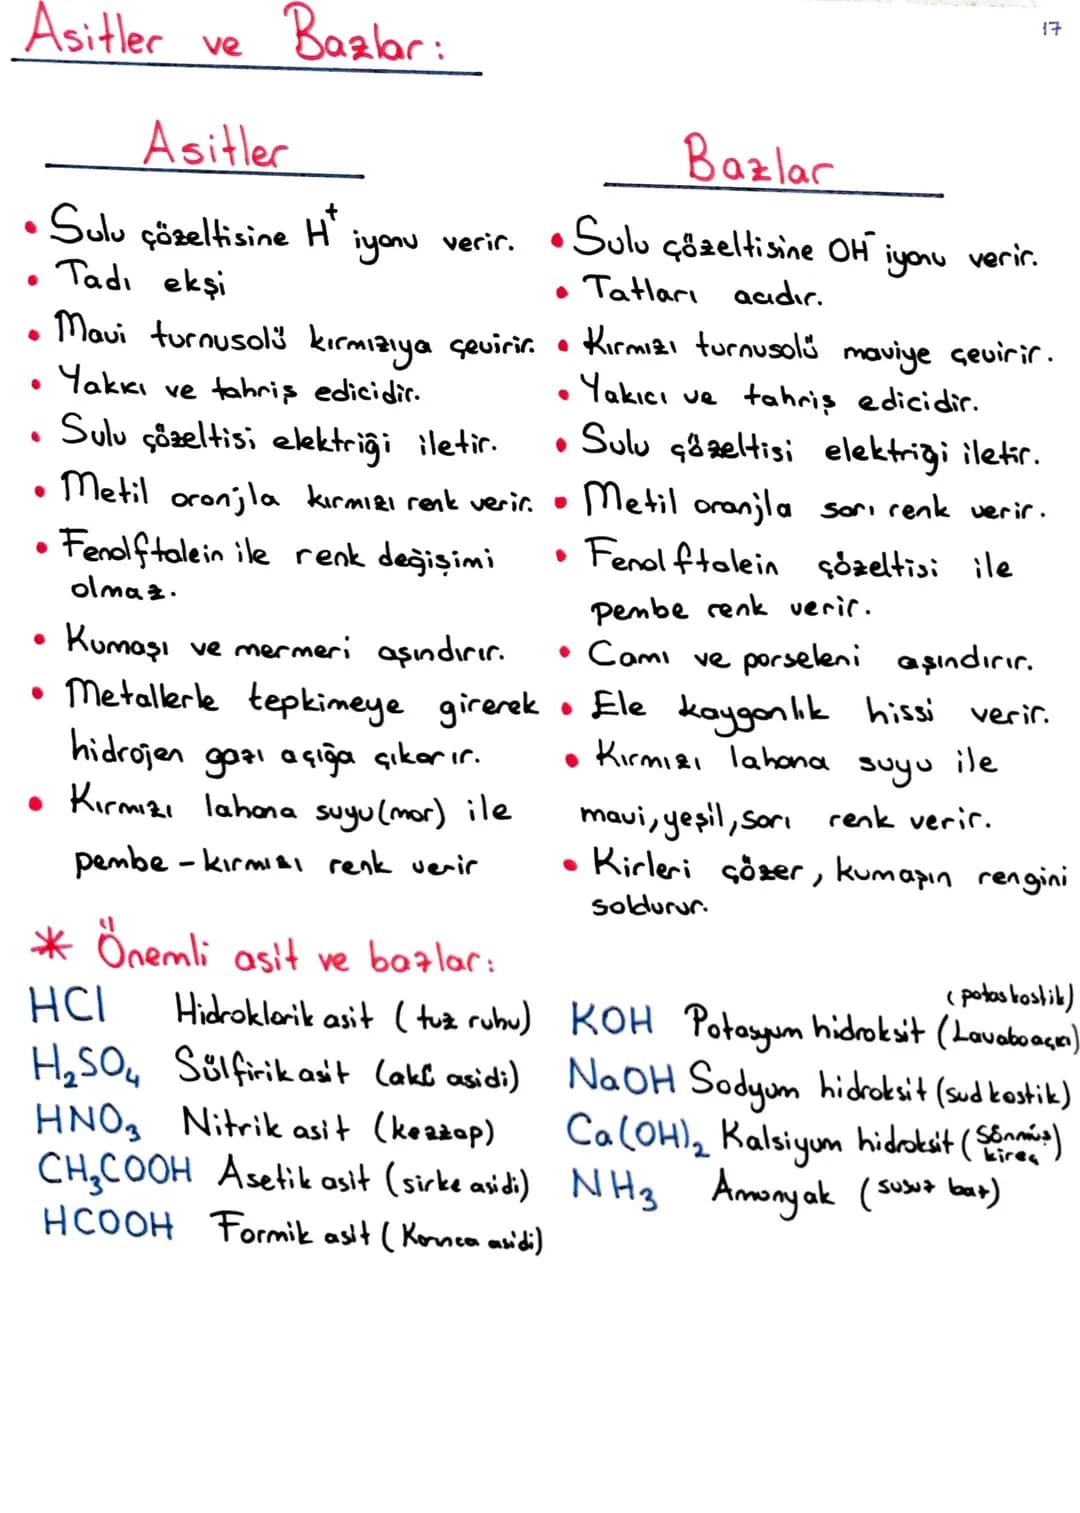 17
Asitler ve Bazlar:
Asitler
• Sulu çözeltisine H⁺ iyonu verir.
• Tadı ekşi
• Mavi turnusolü kırmızıya çevirir.
• Yakıcı ve tahriş edicidir.
• Sulu çözeltisi elektriği iletir.
• Metil oranjla kırmızı renk verir.
• Fenolftalein ile renk değişimi
olmaz.
• Kumaşı ve mermeri aşındırır.
• Metallerle tepkimeye girerek
hidrojen gazı açığa çıkarır.
• Kırmızı lahana suyu(mor) ile
pembe - kırmızı renk verir
Bazlar
• Sulu çözeltisine OH⁻ iyonu verir.
• Tatları acıdır.
• Kırmızı turnusolü maviye çevirir.
• Yakıcı ve tahriş edicidir.
• Sulu çözeltisi elektriği iletir.
• Metil oranjla sarı renk verir.
• Fenolftalein çözeltisi ile
pembe renk verir.
• Camı ve porseleni aşındırır.
• Ele kayganlık hissi verir.
• Kırmızı lahana suyu ile
mavi, yeşil, sarı renk verir.
• Kirleri çözer, kumaşın rengini
soldurur.
* Önemli asit ve bazlar:
HCl Hidroklorik asit (tuz ruhu)
H₂SO₄ Sülfirik asit (akü asidi)
HNO₃ Nitrik asit (kezzap)
CH₃COOH Asetik asit (sirke asidi)
HCOOH Formik asit (Karınca asidi)
(potas kostik)
KOH Potasyum hidroksit (Lavabo açıcı)
NaOH Sodyum hidroksit (sud kostik)
Ca(OH)₂ Kalsiyum hidroksit (Sönmüş kireç)
NH₃ Amonyak (susuz baz)